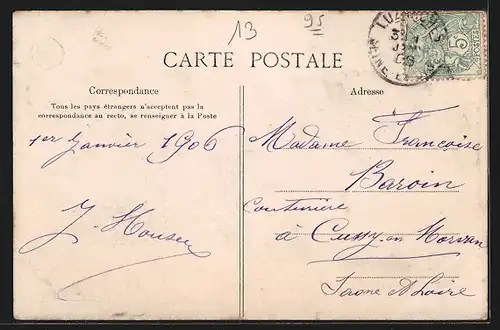 13
95
CARTE POSTALE
Correspondance
Tous les pays étrangers n'acceptent pas la
correspondance au recto, se renseigner à la Poste
1er Janvier 1906
Adresse
Madame Françoise
Baroin
Couturière
à Cussy-en-Morvan
Saone et Loire
5